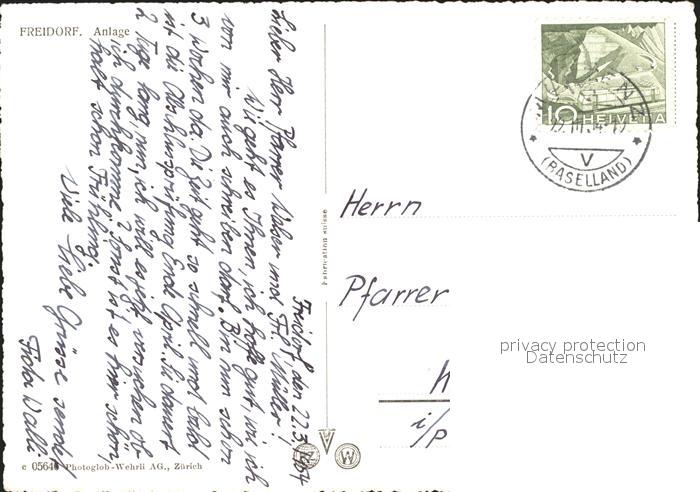 FREIDORF. Anlage
Freidorf, den 22.3.1954
Lieber Herr Pfarrer Weber und Frl. Müller!
Wie geht es Ihnen, ich hoffe gut, wie ich
von mir auch schreiben darf. Bin nun schon
3 Wochen da. Die Zeit geht so schnell und bald
ist die Abschlussprüfung Ende April. Sie dauert
2 Tage lang, nun, ich will es jetzt versuchen ob
ich durchkomme? Sonst ist es hier schön,
halt schon Frühling.
Viele liebe Grüsse sendet
Walli
c 05646 Photoglob-Wehrli AG., Zürich
Fabrication suisse
10 HELVETIA
V
(BASELLAND)
Herrn
Pfarrer
i/P
privacy protection
Datenschutz